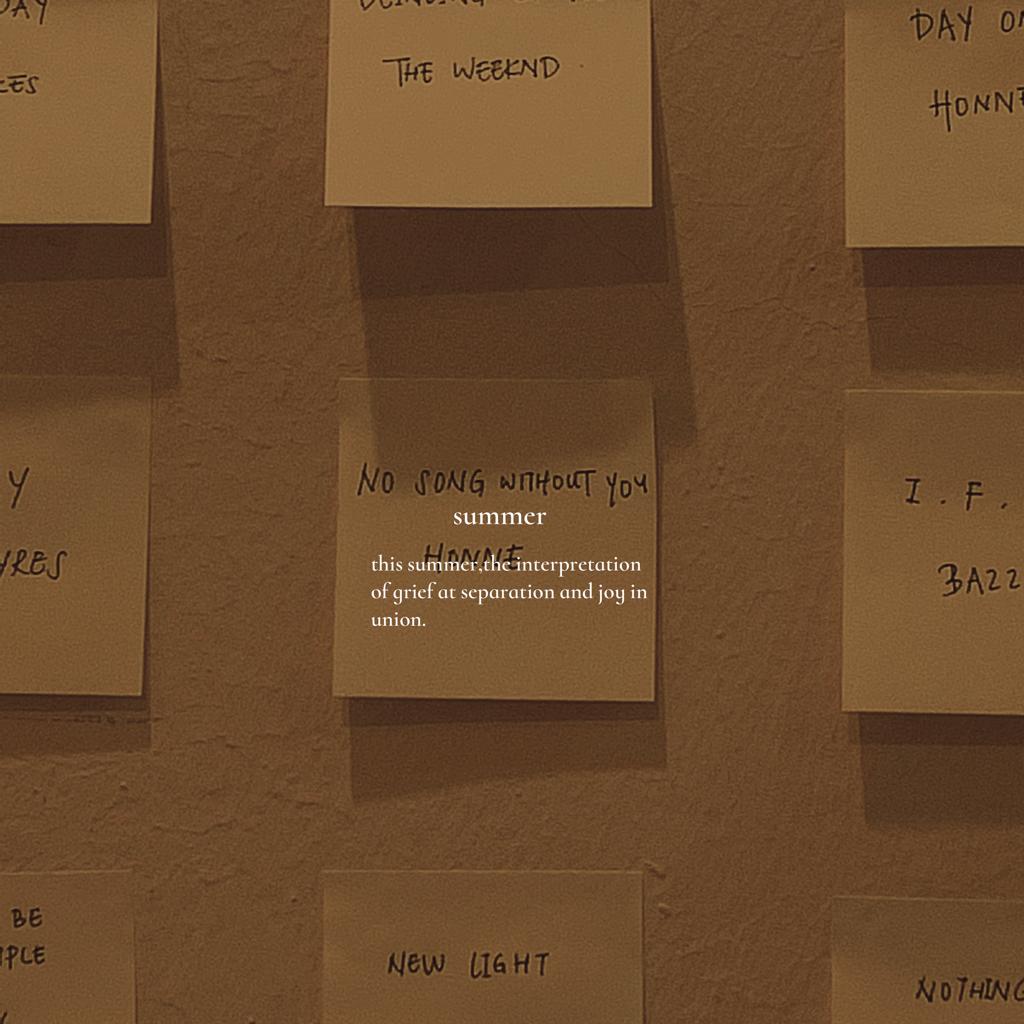 THE WEEKND
DAY
HONNE
NO SONG WITHOUT YOU
summer
HONNE
this summer,the interpretation
of grief at separation and joy in
union.
Y
I . F .
BAZZ
BE
NEW LIGHT
NOTHING